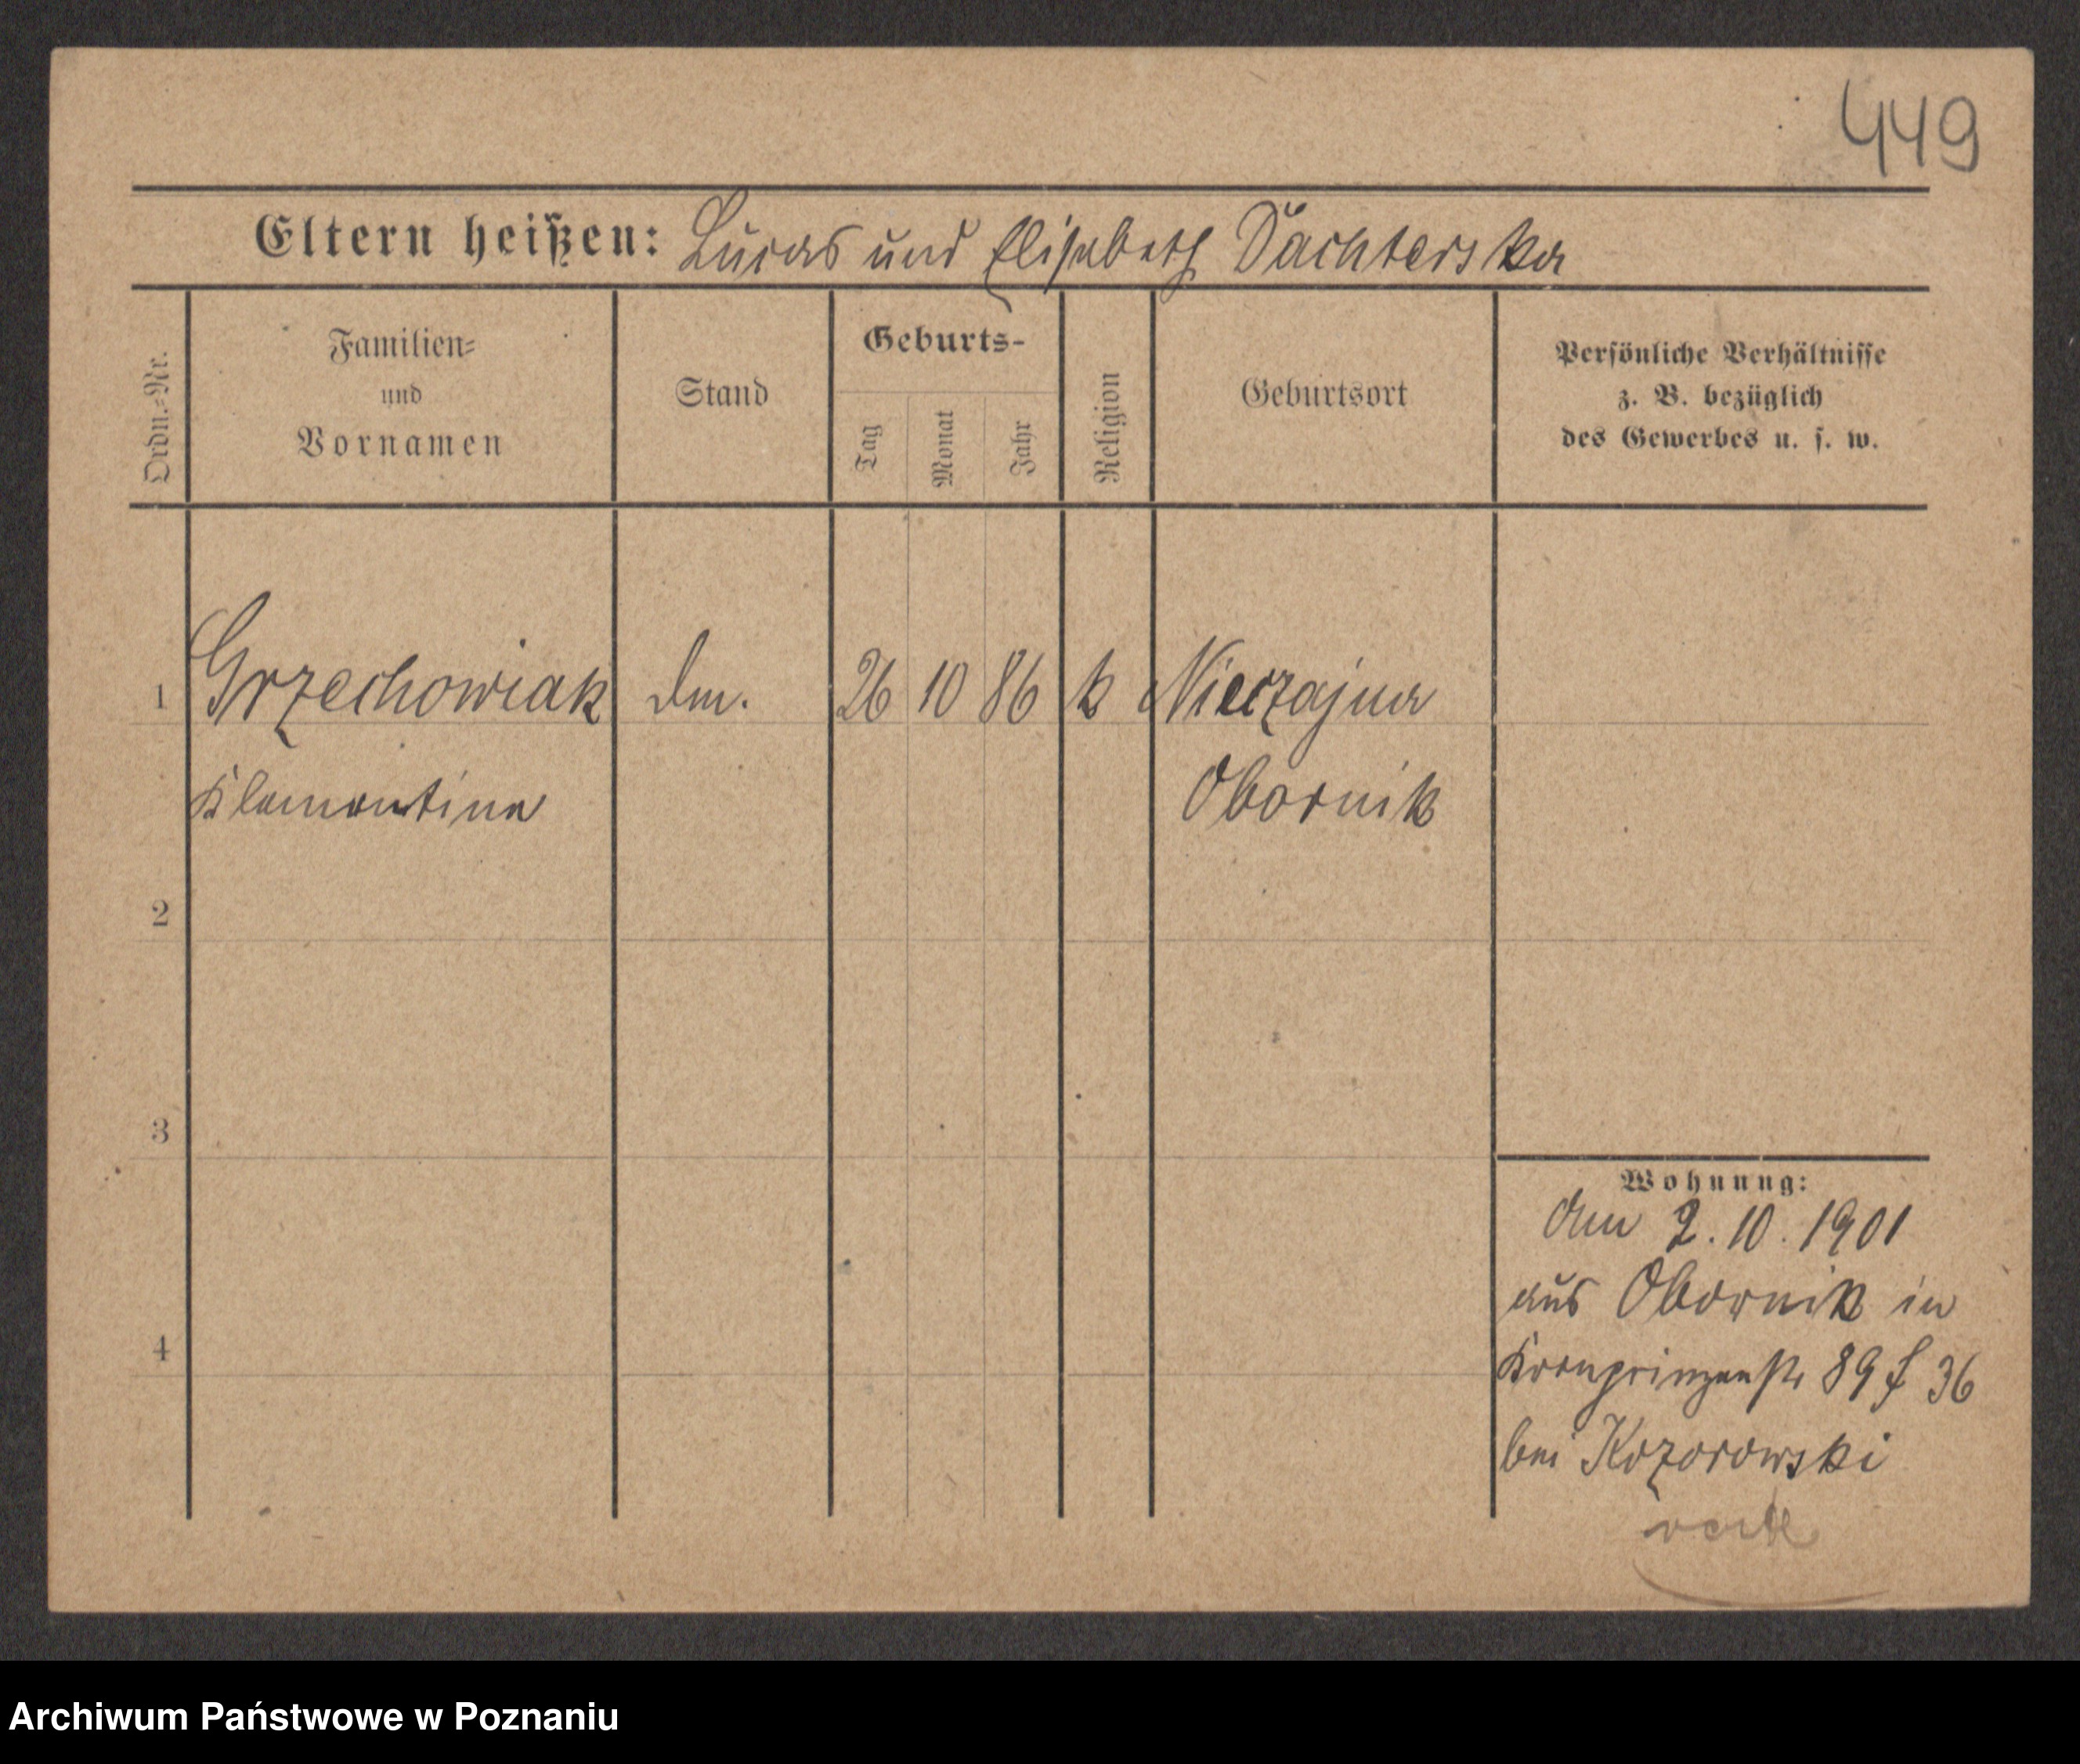 449
Eltern heißen: Lucas und Elisabeth Dachterska
Ordn.-Nr.
Familien-
und
Vornamen
Stand
Geburts-
Tag
Monat
Jahr
Religion
Geburtsort
Persönliche Verhältnisse
z. B. bezüglich
des Gewerbes u. s. w.
1 Grzechowiak 26 10 86 k Nieczajna
Klementine Obornik
2
3
4
Wohnung:
Am 2.10.1901
aus Obornik in
Kronprinzenstr 89 f 36
bei Kozorowski
Archiwum Państwowe w Poznaniu